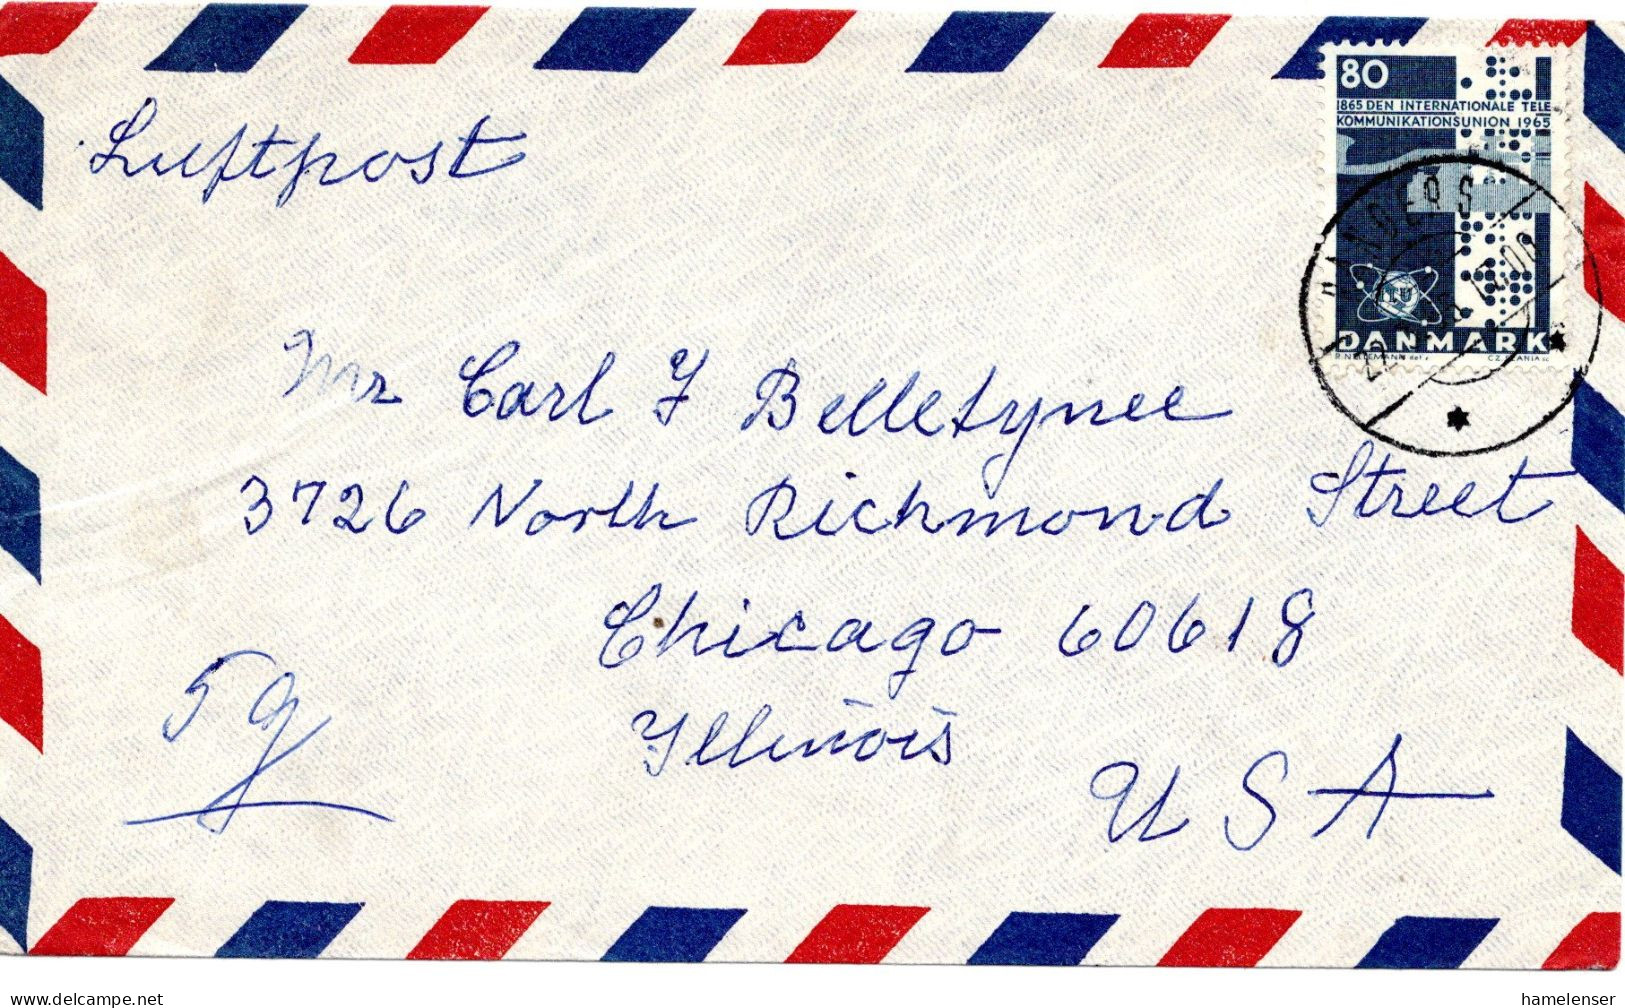 Luftpost
80
1865 DEN INTERNATIONALE TELE
KOMMUNIKATIONSUNION 1965
RANDERS
ITU
DANMARK
C Z. SLANIA sc
Mr Carl J Belletynee
3726 North Richmond Street
Chicago 60618
Illinois
USA
5g
www.delcampe.net
hamelenser